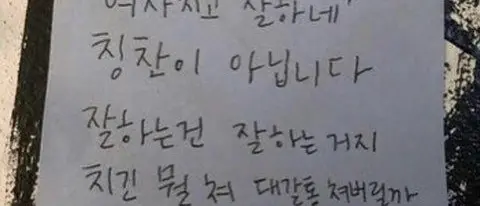 여자치고 잘하네'
칭찬이 아닙니다
잘하는건 잘하는거지
치긴 뭘 쳐 대갈통 쳐버릴까